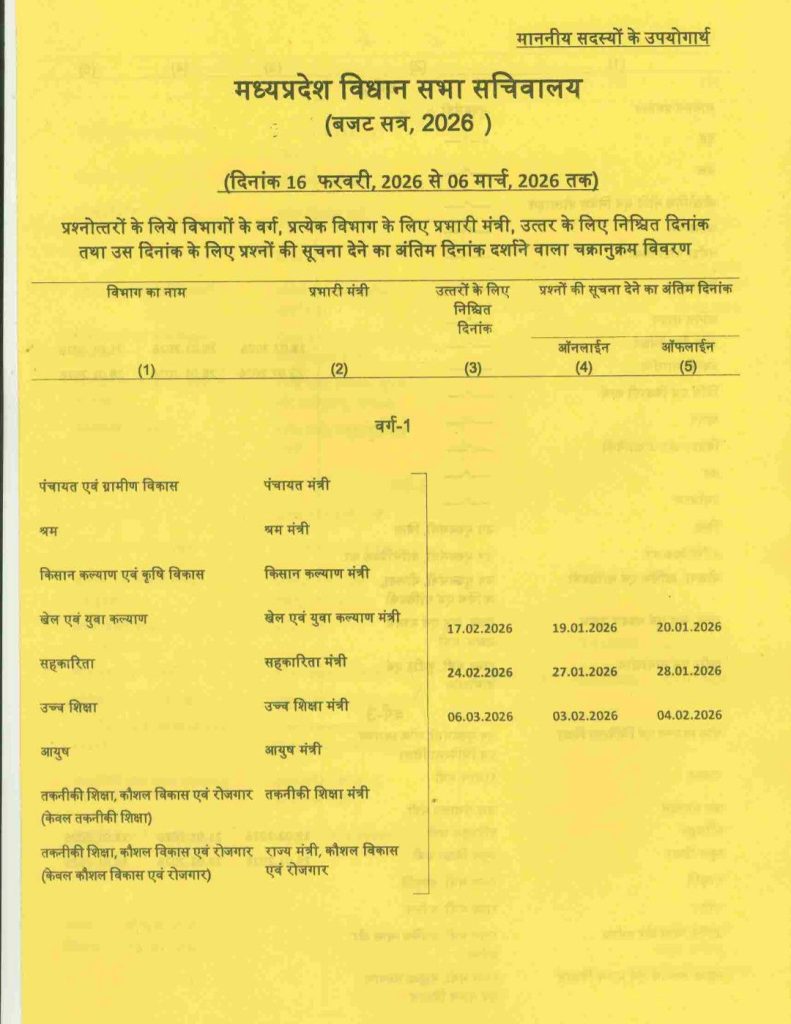 माननीय सदस्यों के उपयोगार्थ
मध्यप्रदेश विधान सभा सचिवालय
(बजट सत्र, 2026 )
(दिनांक 16 फरवरी, 2026 से 06 मार्च, 2026 तक)
प्रश्नोत्तरों के लिये विभागों के वर्ग, प्रत्येक विभाग के लिए प्रभारी मंत्री, उत्तर के लिए निश्चित दिनांक
तथा उस दिनांक के लिए प्रश्नों की सूचना देने का अंतिम दिनांक दर्शाने वाला चक्रानुक्रम विवरण
विभाग का नाम प्रभारी मंत्री उत्तरों के लिए प्रश्नों की सूचना देने का अंतिम दिनांक
निश्चित
दिनांक
ऑनलाईन ऑफलाईन
(1) (2) (3) (4) (5)
वर्ग-1
पंचायत एवं ग्रामीण विकास पंचायत मंत्री
श्रम श्रम मंत्री
किसान कल्याण एवं कृषि विकास किसान कल्याण मंत्री
खेल एवं युवा कल्याण खेल एवं युवा कल्याण मंत्री
17.02.2026 19.01.2026 20.01.2026
सहकारिता सहकारिता मंत्री
24.02.2026 27.01.2026 28.01.2026
उच्च शिक्षा उच्च शिक्षा मंत्री
06.03.2026 03.02.2026 04.02.2026
आयुष आयुष मंत्री
तकनीकी शिक्षा, कौशल विकास एवं रोजगार तकनीकी शिक्षा मंत्री
(केवल तकनीकी शिक्षा)
तकनीकी शिक्षा, कौशल विकास एवं रोजगार राज्य मंत्री, कौशल विकास
(केवल कौशल विकास एवं रोजगार) एवं रोजगार